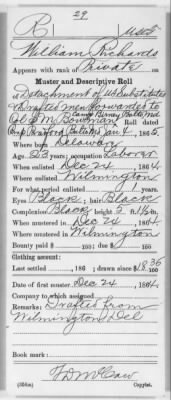 29
R | USCT
William Richards
Appears with rank of Private on
Muster and Descriptive Roll
of a Detachment of U.S. Substitutes
& Drafted men forwarded to
Camp Birney Balto Md
Col S. M. Bowman, Roll dated
Camp Bradford Baltimore Jan 4, 1865.
Where born Delaware
Age 23 years; occupation Laborer
When enlisted Dec 24, 1864
Where enlisted Wilmington
For what period enlisted 1 years.
Eyes Black; hair Black
Complexion Black; height 5 ft. 1½ in.
When mustered in Dec 24, 1864
Where mustered in Wilmington
Bounty paid $ 100; due $ 100
Clothing account:
Last settled 186 ; drawn since $ 18 36/100
Date of first muster Dec 24, 1864
Company to which assigned
Remarks: Drafted from
Wilmington Del
Book mark:
F D McCaw
(384a) Copyist.